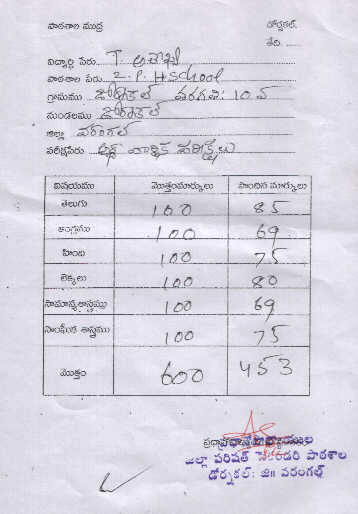 పాఠశాల ముద్ర డోర్నకల్.
తేది. ......
విద్యార్థి పేరు. T. అశోక్
పాఠశాల పేరు Z. P. H School
గ్రామము డోర్నకల్ తరగతి: 10 వ
మండలము డోర్నకల్
జిల్లా వరంగల్
పరీక్షపేరు అర్ధ వార్షిక పరీక్షలు
విషయము మొత్తంమార్కులు పొందిన మార్కులు
తెలుగు 100 85
ఆంగ్లము 100 69
హింది 100 75
లెక్కలు 100 80
సామాన్యశాస్త్రము 100 69
సాంఘీక శాస్త్రము 100 75
మొత్తం 600 453
జిల్లా పరిషత్ సెకండరి పాఠశాల
డోర్నకల్: జిః వరంగల్